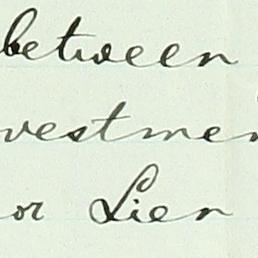 between
vestmen
or Lien